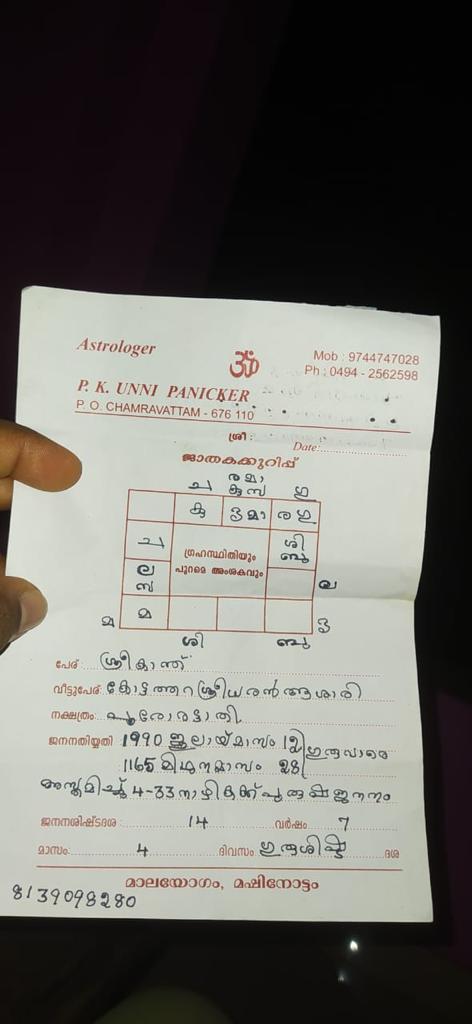 Astrologer
ॐ
Mob : 9744747028
Ph : 0494 - 2562598
P. K. UNNI PANICKER
P. O. CHAMRAVATTAM - 676 110
ശ്രീ :
Date:
ജാതകക്കുറിപ്പ്
ര മാ
ച കു സ ഗു
കു ദ്ദ മാ ര ഗു
ച ശി
ബു
ല
സ
ഗ്രഹസ്ഥിതിയും
പുറമെ അംശകവും
ല
മ മ
ശി ബു
പേര് ശ്രീകാന്ത്
വീട്ടുപേര് കോട്ടത്തറ ശ്രീധരൻ ആശാരി
നക്ഷത്രം പൂരോരട്ടാതി
ജനനതിയ്യതി 1990 ജൂലായ് മാസം 12
1165 മിഥുനമാസം 28
അസ്തമിച്ച് 4-33 നാഴികക്ക് പുരുഷജനനം
ജനനശിഷ്ടദശ : 14 വർഷം 7
മാസം 4 ദിവസം ദശ
മാലയോഗം, മഷിനോട്ടം
8139098280